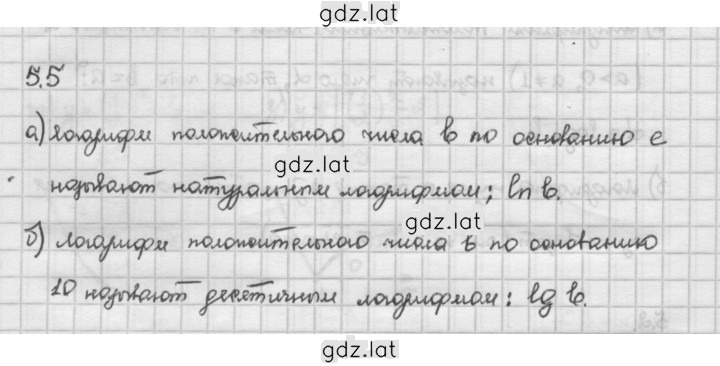 gdz.lat
5.5
а) логарифм положительного числа b по основанию e
gdz.lat
называют натуральным логарифмом; ln b.
gdz.lat
б) логарифм положительного числа b по основанию
10 называют десятичным логарифмом: lg b.
gdz.lat